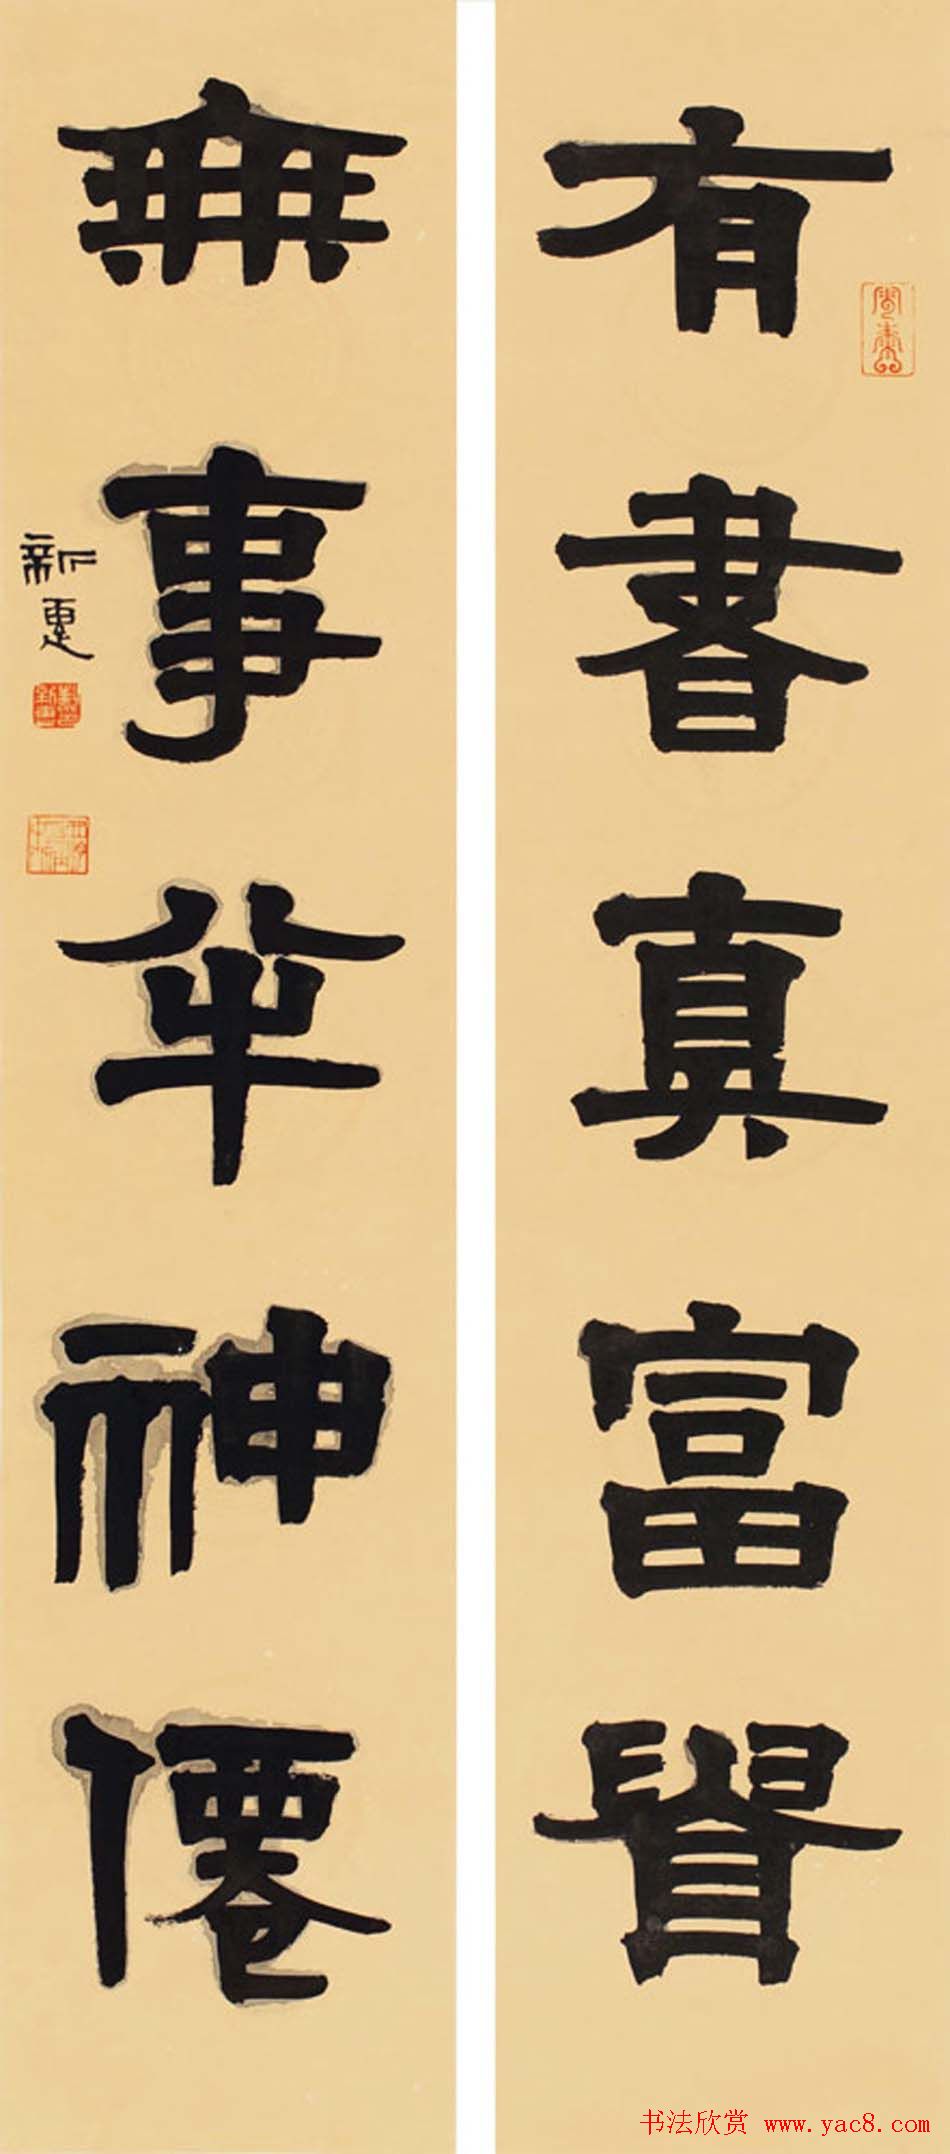 有書真富貴
無事半神僊
新惠
书法欣赏 www.yac8.com